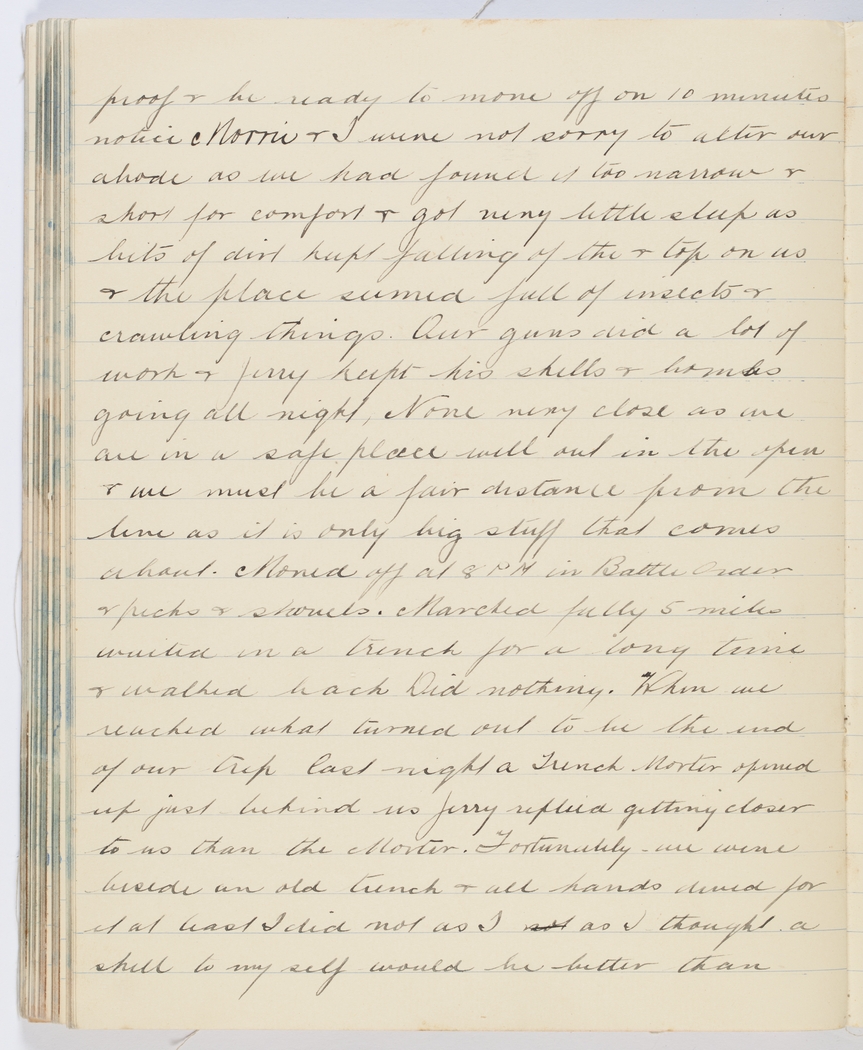 proof & be ready to move off on 10 minutes
notice Morrie & I were not sorry to alter our
abode as we had found it too narrow &
short for comfort & got very little sleep as
bits of dirt kept falling of the & top on us
& the place seemed full of insects &
crawling things. Our guns did a lot of
work & Jerry kept his shells & bombs
going all night, None very close as we
are in a safe place well out in the open
& we must be a fair distance from the
line as it is only big stuff that comes
about. Moved off at 8 PM in Battle Order
& picks & shovels. Marched fully 5 miles
waited in a trench for a long time
& walked back Did nothing. When we
reached what turned out to be the end
of our trip last night a Trench Morter opened
up just behind us Jerry replied getting closer
to us than the Morter. Fortunately we were
beside an old trench & all hands dived for
it at least I did not as I not as I thought a
shell to my self would be better than